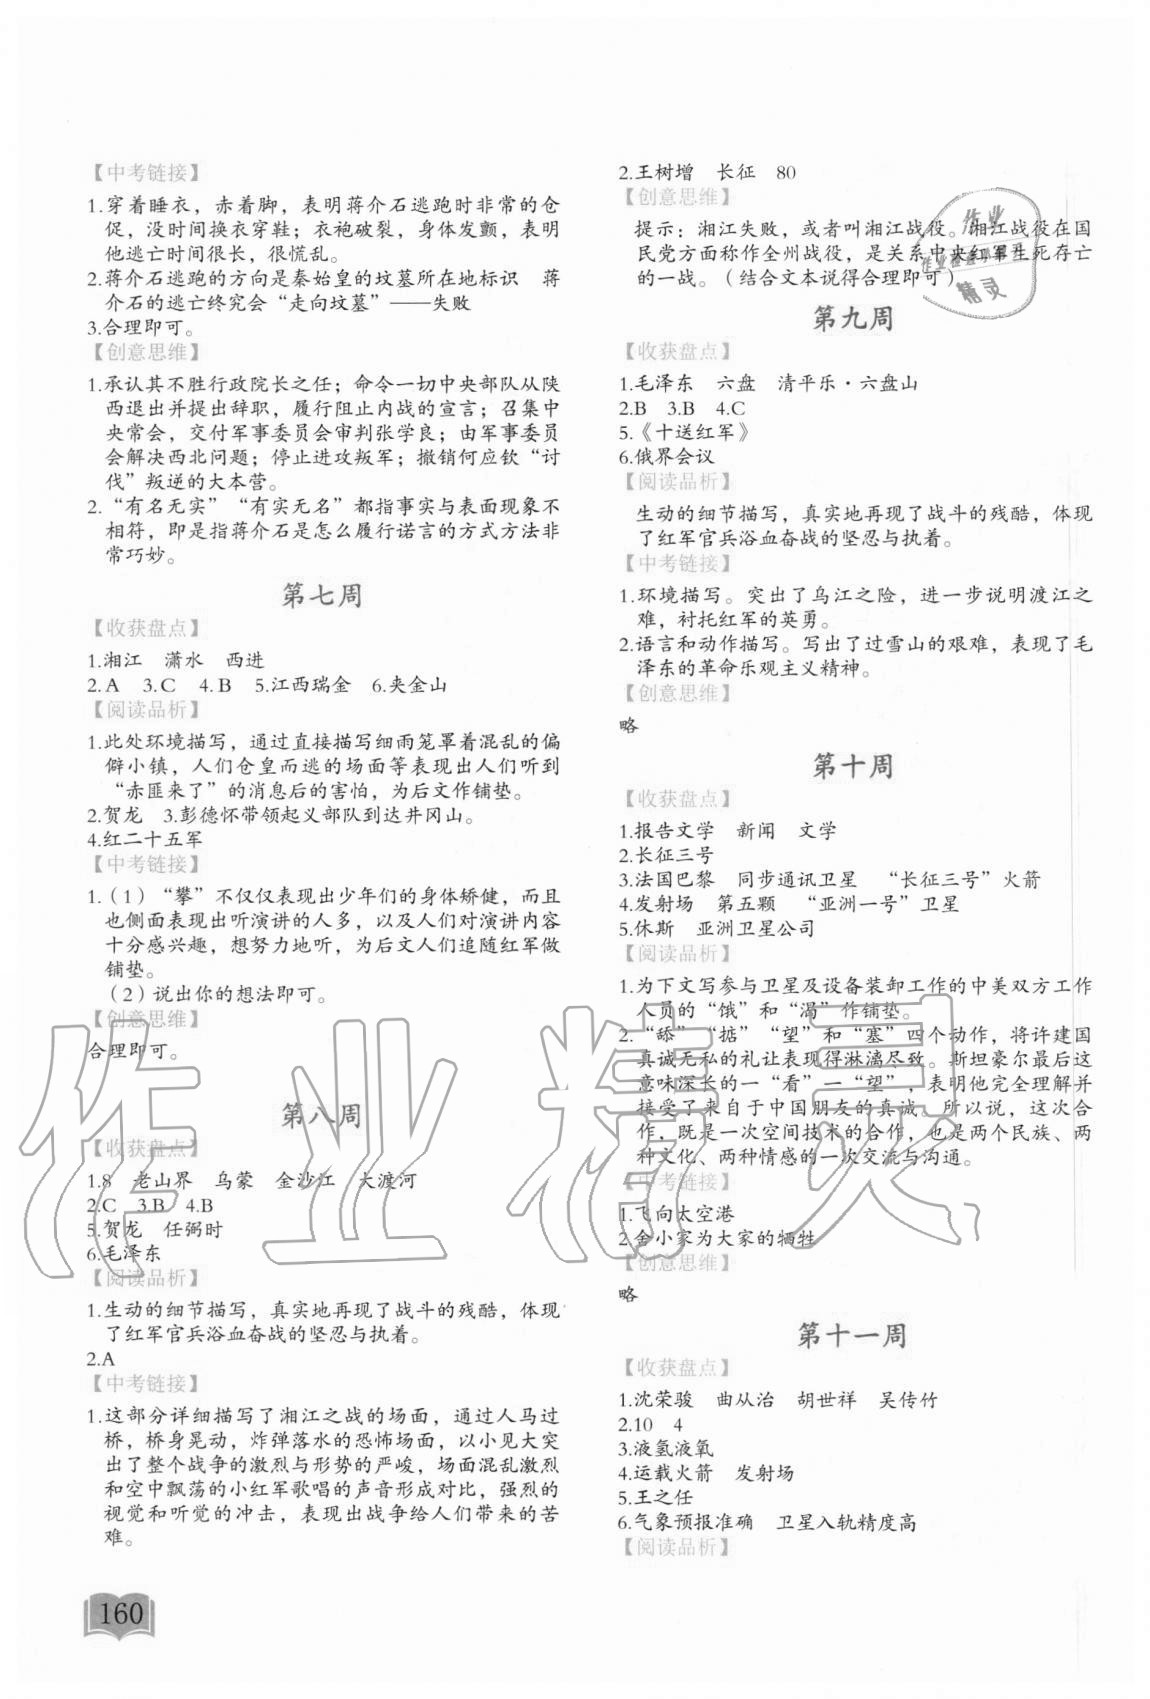 【中考链接】
1.穿着睡衣，赤着脚，表明蒋介石逃跑时非常的仓
促，没时间换衣穿鞋；衣袍破裂，身体发颤，表明
他逃亡时间很长，很慌乱。
2.蒋介石逃跑的方向是秦始皇的坟墓所在地标识　蒋
介石的逃亡终究会“走向坟墓”——失败
3.合理即可。
【创意思维】
1.承认其不胜行政院长之任；命令一切中央部队从陕
西退出并提出辞职，履行阻止内战的宣言；召集中
央常会，交付军事委员会审判张学良；由军事委员
会解决西北问题；停止进攻叛军；撤销何应钦“讨
伐”叛逆的大本营。
2.“有名无实”“有实无名”都指事实与表面现象不
相符，即是指蒋介石是怎么履行诺言的方式方法非
常巧妙。
第七周
【收获盘点】
1.湘江　潇水　西进
2.A　3.C　4.B　5.江西瑞金　6.夹金山
【阅读品析】
1.此处环境描写，通过直接描写细雨笼罩着混乱的偏
僻小镇，人们仓皇而逃的场面等表现出人们听到
“赤匪来了”的消息后的害怕，为后文作铺垫。
2.贺龙　3.彭德怀带领起义部队到达井冈山。
4.红二十五军
【中考链接】
1.（1）“攀”不仅仅表现出少年们的身体矫健，而且
也侧面表现出听演讲的人多，以及人们对演讲内容
十分感兴趣，想努力地听，为后文人们追随红军做
铺垫。
（2）说出你的想法即可。
【创意思维】
合理即可。
第八周
【收获盘点】
1.8　老山界　乌蒙　金沙江　大渡河
2.C　3.B　4.B
5.贺龙　任弼时
6.毛泽东
【阅读品析】
1.生动的细节描写，真实地再现了战斗的残酷，体现
了红军官兵浴血奋战的坚忍与执着。
2.A
【中考链接】
1.这部分详细描写了湘江之战的场面，通过人马过
桥，桥身晃动，炸弹落水的恐怖场面，以小见大突
出了整个战争的激烈与形势的严峻，场面混乱激烈
和空中飘荡的小红军歌唱的声音形成对比，强烈的
视觉和听觉的冲击，表现出战争给人们带来的苦
难。
160
2.王树增　长征　80
【创意思维】
提示：湘江失败，或者叫湘江战役。湘江战役在国
民党方面称作全州战役，是关系中央红军生死存亡
的一战。（结合文本说得合理即可）
第九周
【收获盘点】
1.毛泽东　六盘　清平乐·六盘山
2.B　3.B　4.C
5.《十送红军》
6.俄界会议
【阅读品析】
生动的细节描写，真实地再现了战斗的残酷，体现
了红军官兵浴血奋战的坚忍与执着。
【中考链接】
1.环境描写。突出了乌江之险，进一步说明渡江之
难，衬托红军的英勇。
2.语言和动作描写。写出了过雪山的艰难，表现了毛
泽东的革命乐观主义精神。
【创意思维】
略
第十周
【收获盘点】
1.报告文学　新闻　文学
2.长征三号
3.法国巴黎　同步通讯卫星　“长征三号”火箭
4.发射场　第五颗　“亚洲一号”卫星
5.休斯　亚洲卫星公司
【阅读品析】
1.为下文写参与卫星及设备装卸工作的中美双方工作
人员的“饿”和“渴”作铺垫。
2.“舔”“掂”“望”和“塞”四个动作，将许建国
真诚无私的礼让表现得淋漓尽致。斯坦豪尔最后这
意味深长的一“看”一“望”，表明他完全理解并
接受了来自于中国朋友的真诚。所以说，这次合
作，既是一次空间技术的合作，也是两个民族、两
种文化、两种情感的一次交流与沟通。
【中考链接】
1.飞向太空港
2.舍小家为大家的牺牲
【创意思维】
略
第十一周
【收获盘点】
1.沈荣骏　曲从治　胡世祥　吴传竹
2.10　4
3.液氢液氧
4.运载火箭　发射场
5.王之任
6.气象预报准确　卫星入轨精度高
【阅读品析】
作业
精灵
作业精灵